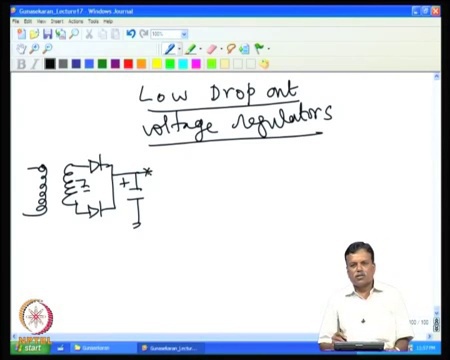 Gunasekaran_Lecture17 - Windows Journal
File Edit View Insert Actions Tools Help
100%
B I
Low Drop out
voltage regulators
+
NPTEL
100 / 100
start
Gunasekaran
Gunasekaran_Lectu...